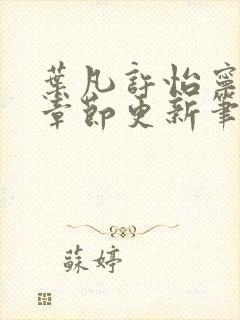 葉凡許怡寧
章節更新筆
蘇婷